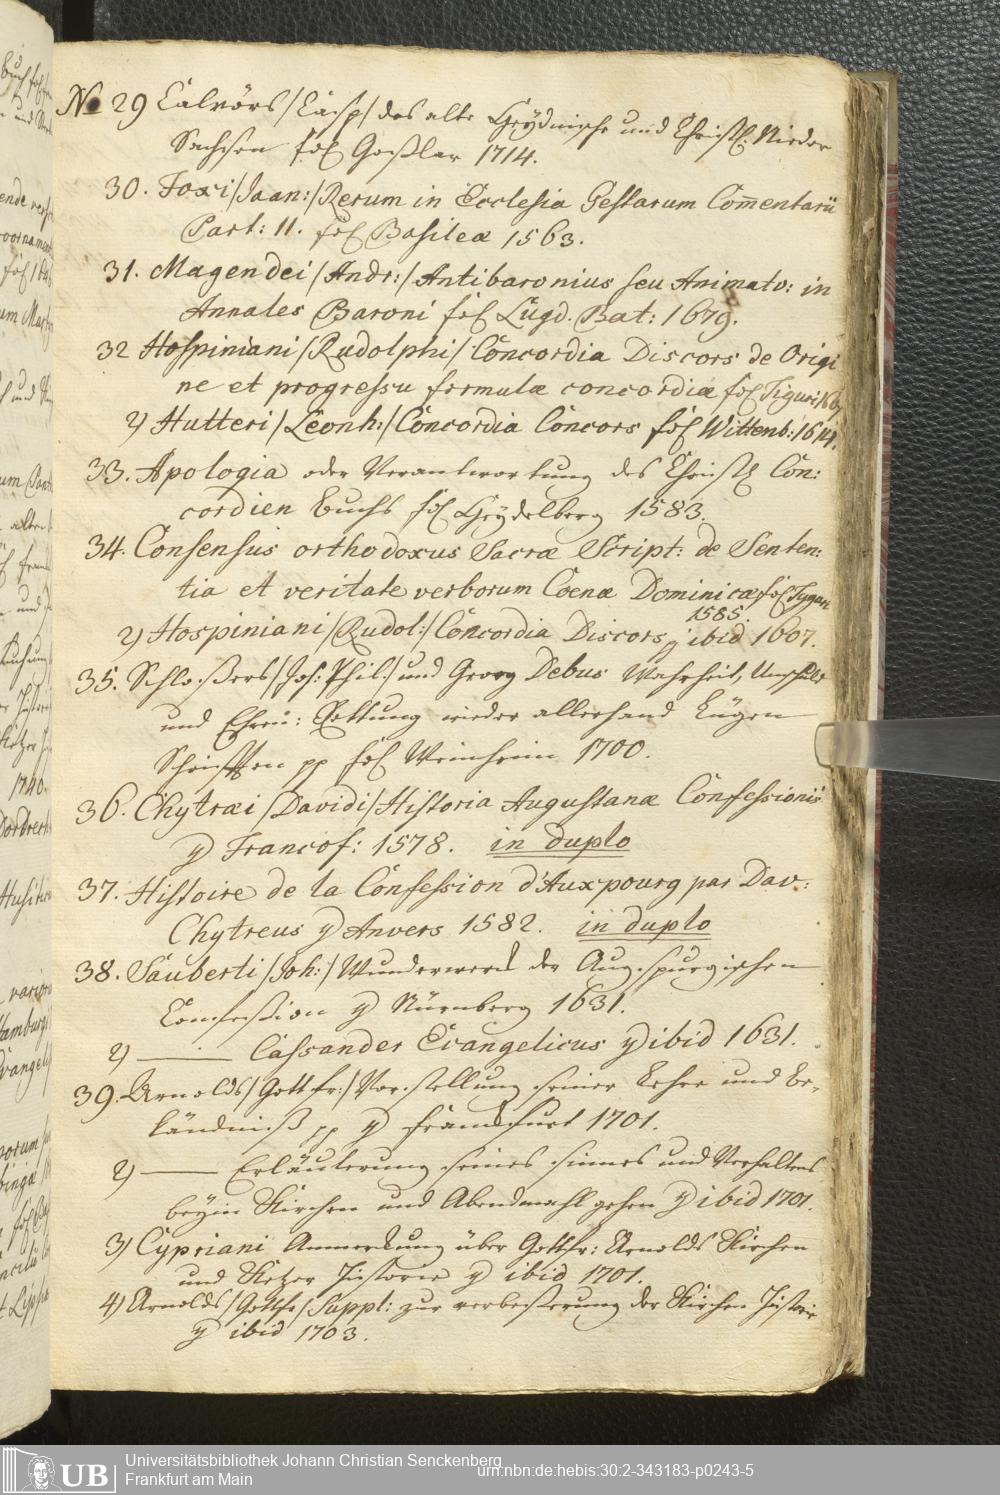 No 29 Calvörs /Casp/ das alte Heydnische und Christl: Nieder
Sachsen fol Goslar 1714.
30. Foxi /Joan:/ Rerum in Ecclesia Gestarum Com̄entarii
Part: II. fol Basileæ 1563.
31. Magendei /Andr:/ Antibaronius seu Animatv: in
Annales Baroni fol Lugd. Bat: 1679.
32 Hospiniani /Rudolphi/ Concordia Discors de Origi
ne et progressu formulæ concordiæ fol Tiguri 1607
2) Hutteri /Leonh:/ Concordia Concors fol Wittenb: 1614.
33. Apologia oder Verantwortung des Christl Con:
cordien Buchs fol Heydelberg 1583.
34. Consensus orthodoxus Sacræ Script: de Senten:
tia et veritate verborum Coenæ Dominicæ fol Tyguri
1585
2) Hospiniani /Rudol:/ Concordia Discors ibid 1607.
35. Schlossers /Joh: Phil:/ und Georg Debus Wahrheit, Unschuld
und Ehren: Rettung wieder allerhand Lügen
Schrifften pp fol Weinheim 1700.
36. Chytræi /Davidi/ Historia Augustanæ Confessionis
4 Francof: 1578. in duplo
37. Histoire de la Confession d'Auxpourg par Dav:
Chytreus 4 Anvers 1582. in duplo
38. Sauberti /Joh:/ Wunderwerck der Augspurgischen
Confession 4 Nürnberg 1631.
2) ——— Cassander Evangelicus 4 ibid 1631.
39. Arnolds /Gottfr:/ Vorstellung seiner Lehre und Be-
kändniß pp 4 Franckfurt 1701.
2) ——— Erläuterung seines sinnes und Verhaltens
beym Kirchen und Abendmahl gehen 4 ibid 1701.
3) Cypriani Anmerckung über Gottfr: Arnolds Kirchen
und Ketzer Historie 4 ibid 1701.
4) Arnolds /Gottfr/ Suppl: zur verbesserung der Kirchen Historie
4 ibid 1703.
UB
Universitätsbibliothek Johann Christian Senckenberg
Frankfurt am Main
urn:nbn:de:hebis:30:2-343183-p0243-5